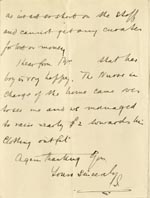 as is at so short on the staff
and cannot get any curates
for love or money.
I hear from Br that has
boy is very happy. The Nurse in
charge of the home came over
to see me and we managed
to raise nearly £2 towards his
Clothing outfit
Again thanking you
Yours sincerely